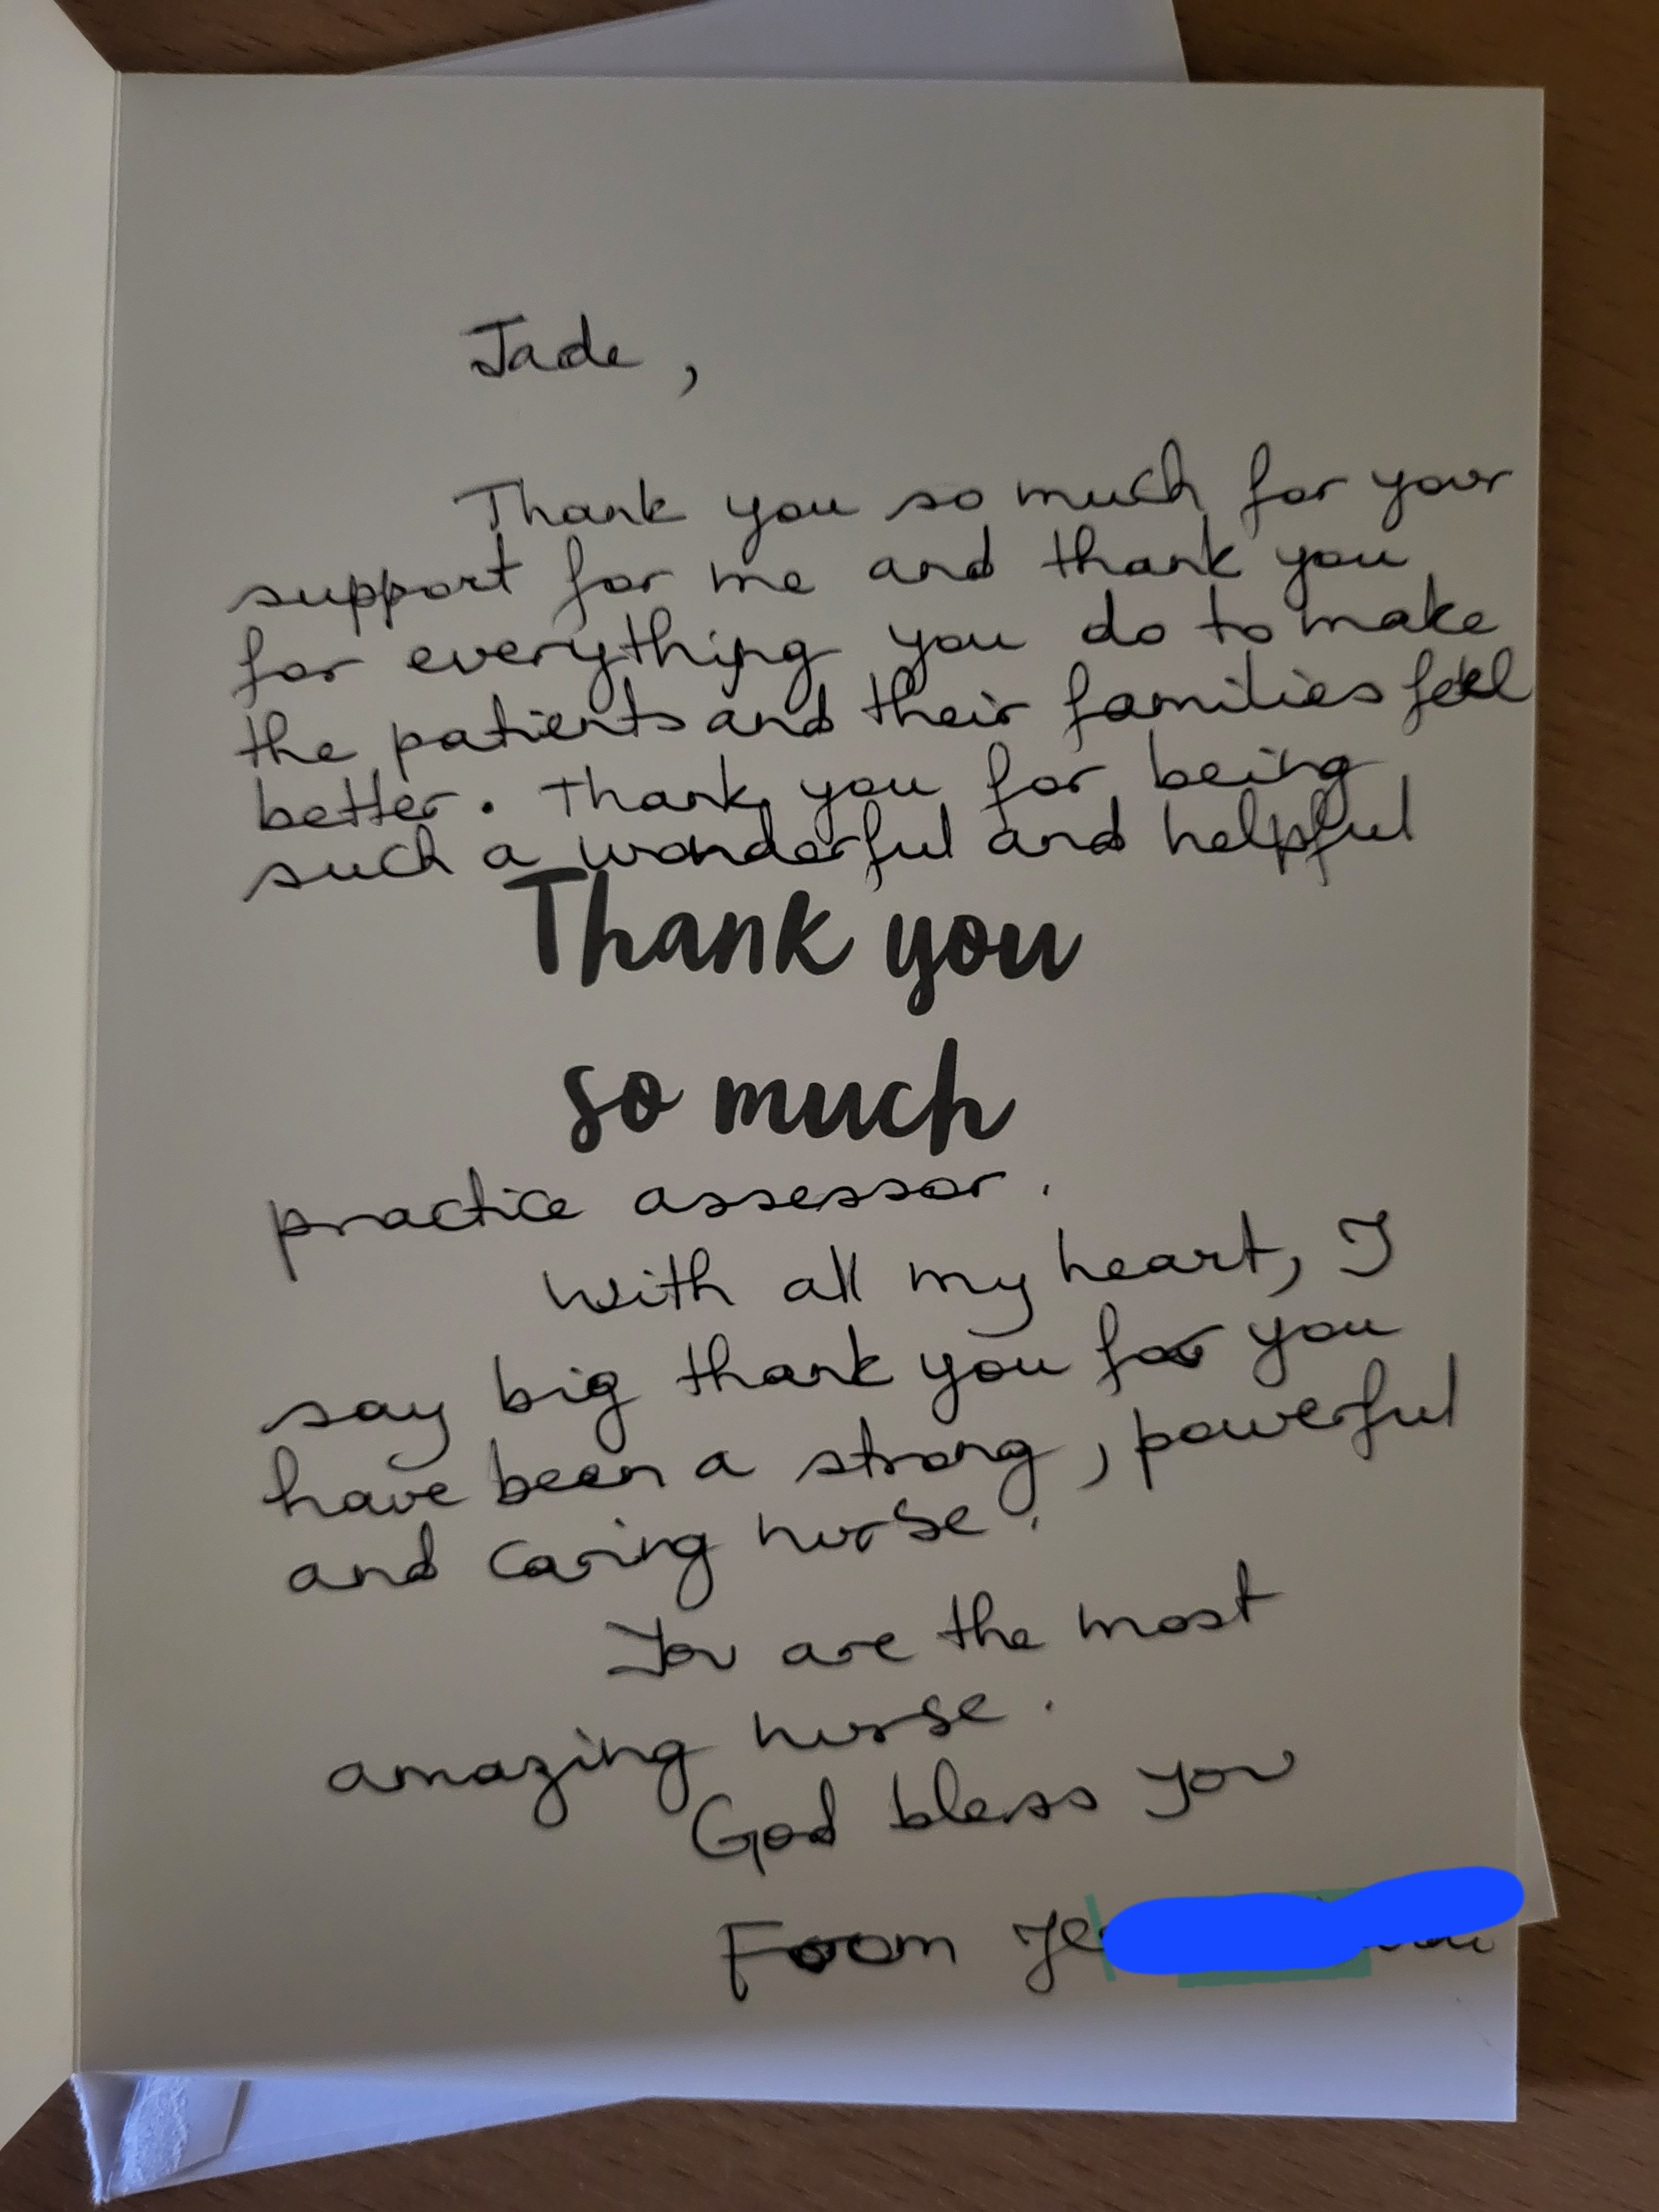 Jade,
Thank you so much for your
support for me and thank you
for everything you do to make
the patients and their families feel
better. Thank you for being
such a wonderful and helpful
Thank you
so much
practice assessor.
With all my heart, I
say big thank you for you
have been a strong, powerful
and caring nurse.
You are the most
amazing nurse.
God bless you
From